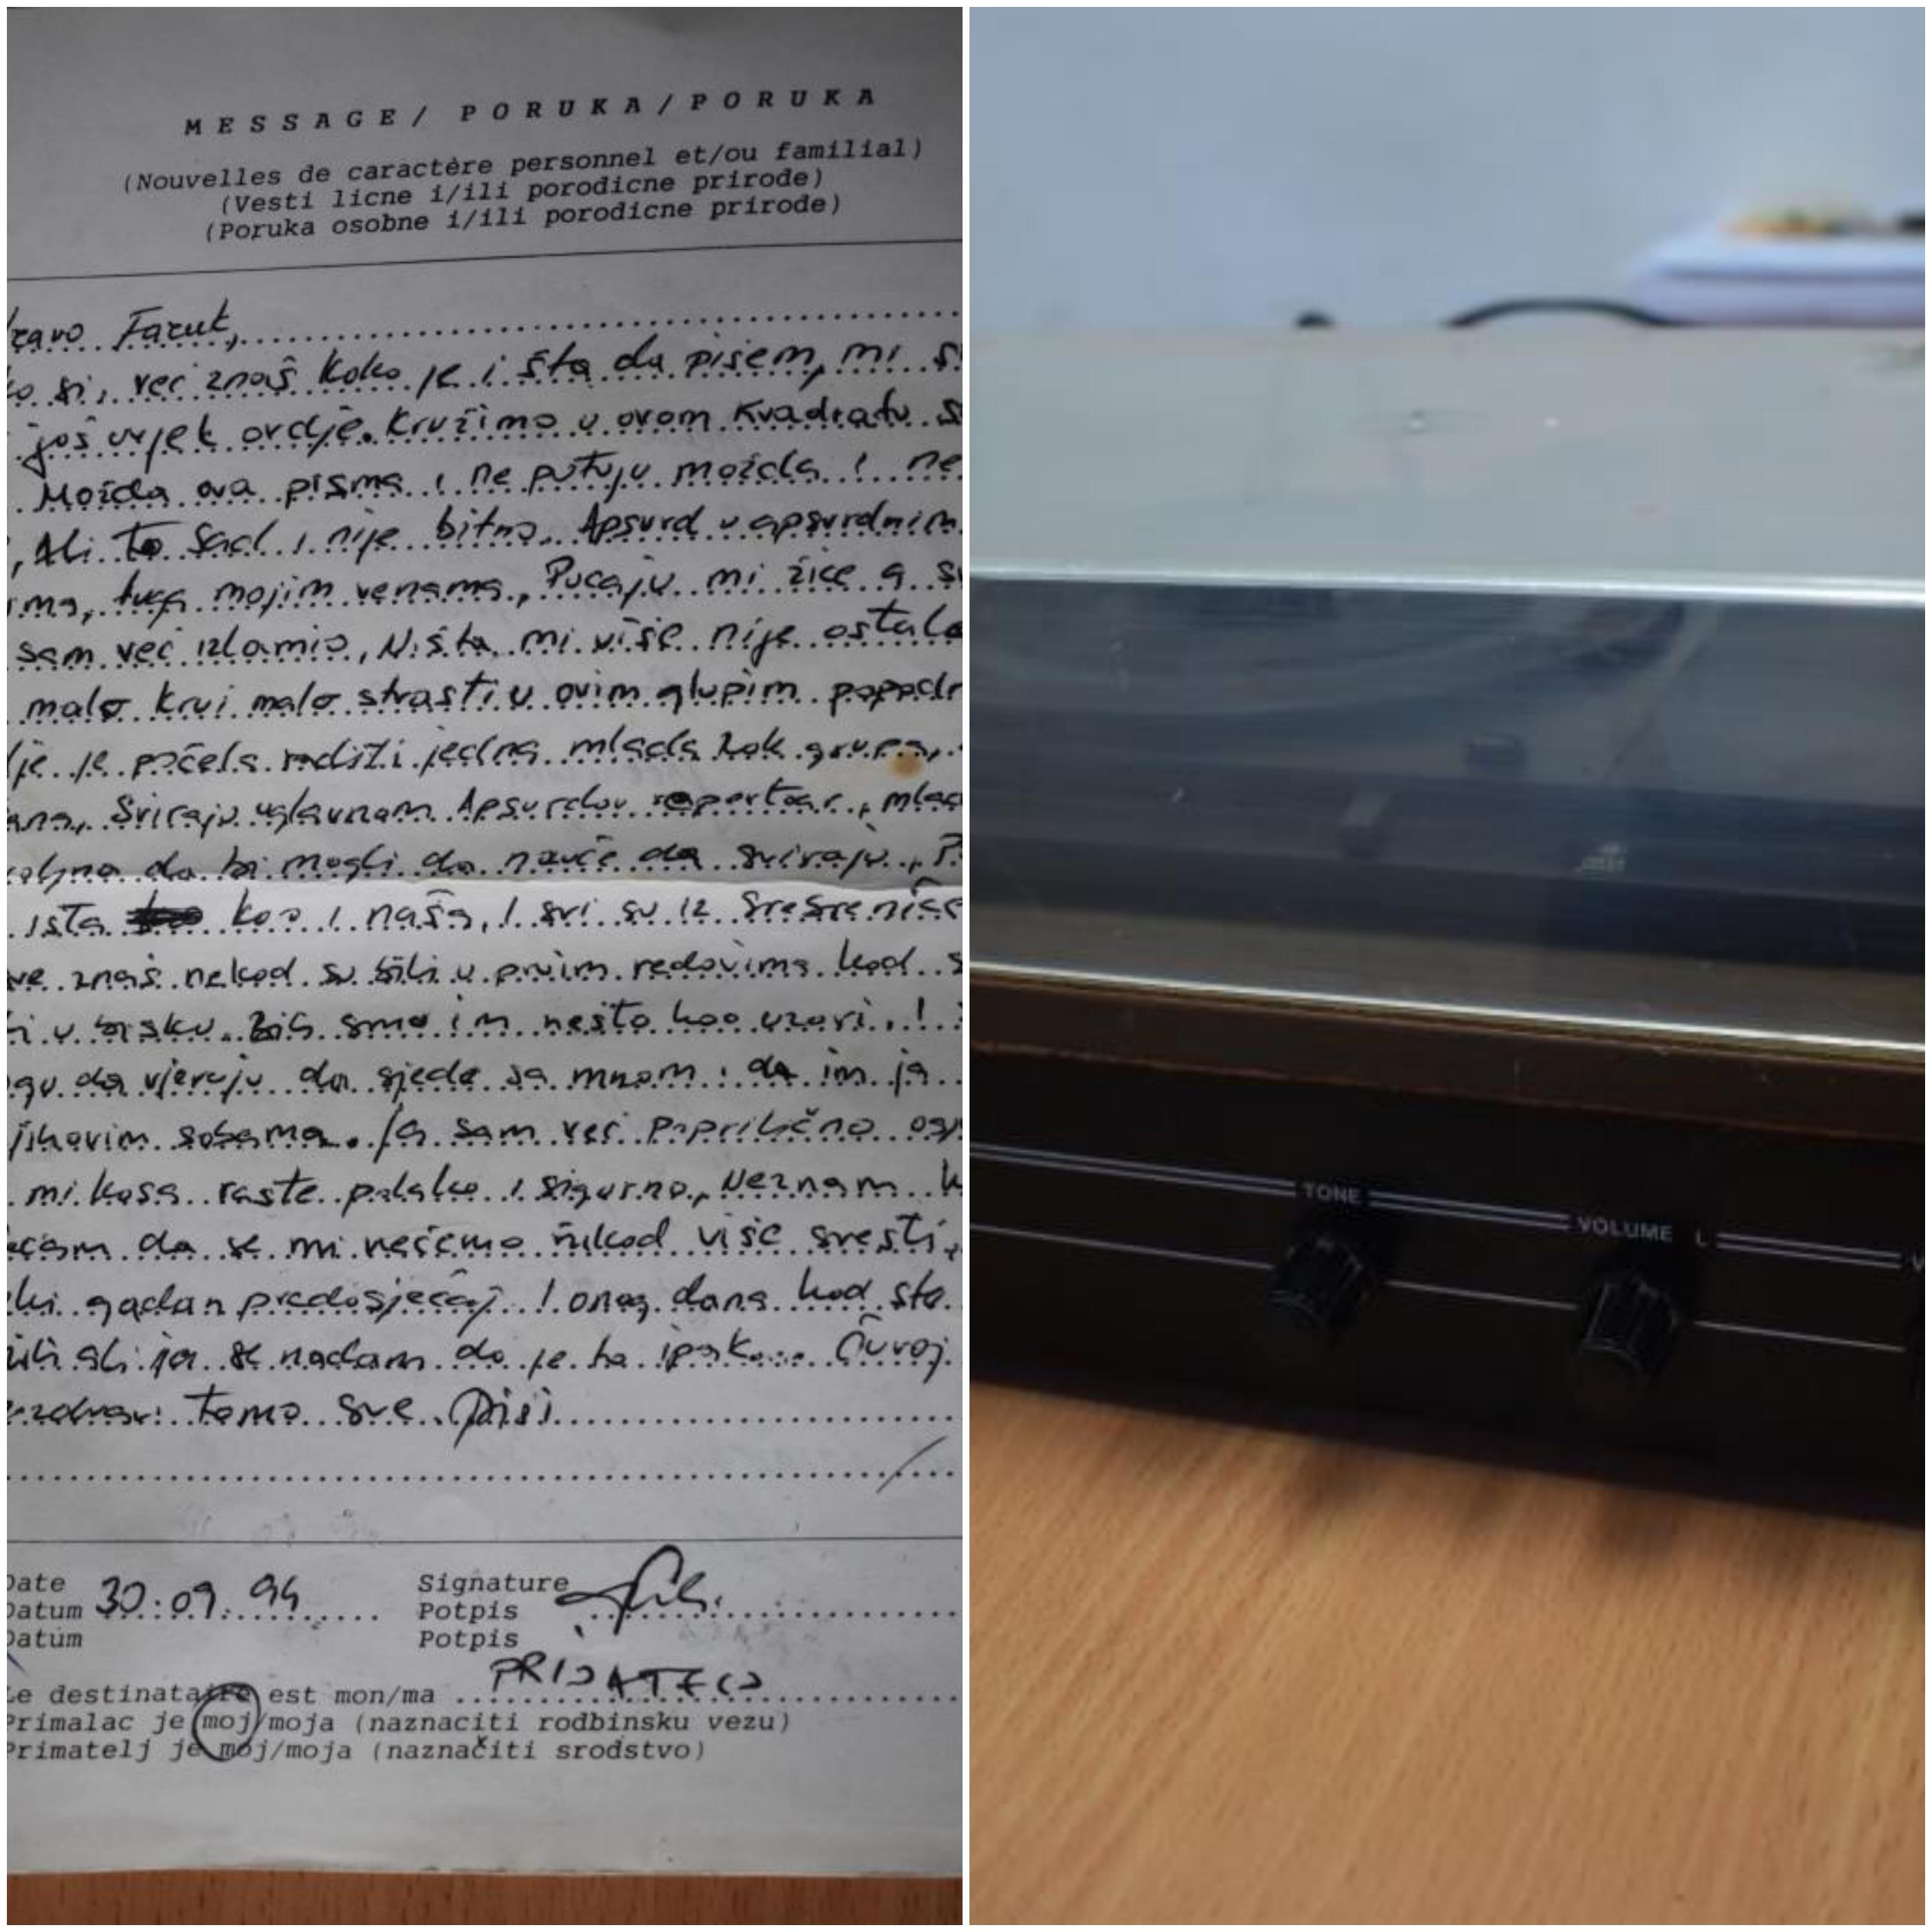 MESSAGE/ PORUKA/PORUKA
(Nouvelles de caractère personnel et/ou familial)
(Vesti licne i/ili porodicne prirode)
(Poruka osobne i/ili porodicne prirode)
Faruk,
si, već znaš kako je i šta da pišem, mi s
još uvjek ovdje. Kružimo u ovom kvadratu s
Možda ova pisma i ne putuju možda i ne
, Ali to sad i nije bitno. Apsurd u apsurdnim
ma, tuga mojim venama, Pucaju mi žice a s
sam već izlamio, Ništa mi više nije ostalo
malo krvi malo strasti u ovim glupim popodn
je je počela raditi jedna mlada rok grupa,
Sviraju uglavnom Apsurdov repertoar, mlad
da bi mogli da nauče da sviraju. P
ista kao i naša, I svi su iz Srebrenice
znaš nekad su bili u prvim redovima kad s
i u bisku. Bili smo im nešto kao uzori. I
gu da vjeruju da sjede sa mnom i da im ja
jihovim sobama. Ja sam već poprilično
mi kosa raste polako i sigurno, Neznam k
da se mi nećemo nikad više sresti,
ki gadan predosjećaj I onog dana kad sta
ili ali ja se nadam da je to ipak... Čuvaj
tamo sve Piši
Date
Datum 30.09.94
Datum
Signature
Potpis
Potpis
PRIJATELJ
Le destinataire est mon/ma
Primalac je moj/moja (naznaciti rodbinsku vezu)
Primatelj je moj/moja (naznačiti srodstvo)
TONE
VOLUME L